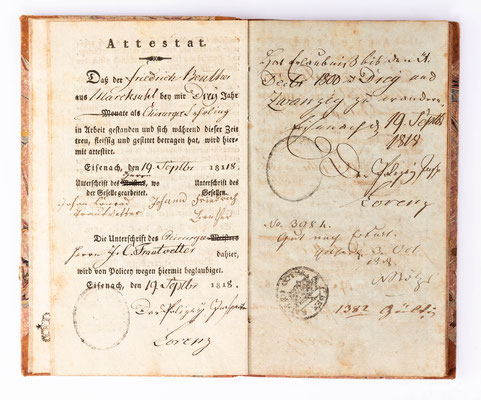 Attestat.
Daß der Friedrich Beuther
aus Marcksuhl bey mir Drey Jahr
Monate als Chirurgie Lehrling
in Arbeit gestanden und sich während dieser Zeit
treu, fleissig und gesittet betragen hat, wird hier-
mit attestirt.
Eisenach, den 19 Septbr 1818.
Unterschrift des Meisters, wo Herrn
der Geselle gearbeitet.
Unterschrift des
Gesellen.
Johann Conrad
Trautvetter
Johann Friedrich
Beuther
Die Unterschrift des Chirurgen Meisters
Herrn J. C. Trautvetter
dahier,
wird von Policey wegen hiermit beglaubiget.
Eisenach, den 19 Septbr 1818.
Der Polizey
Lorenz
hat Erlaubniß bis den 21
Decbr 1800 Drey und
Zwanzig zu wandern
Eisenach d 19 Septbr
1818
Der Polizey
Lorenz
No. 3984.
Gut nach Erfurt.
3. Oct.
1382 Gültig